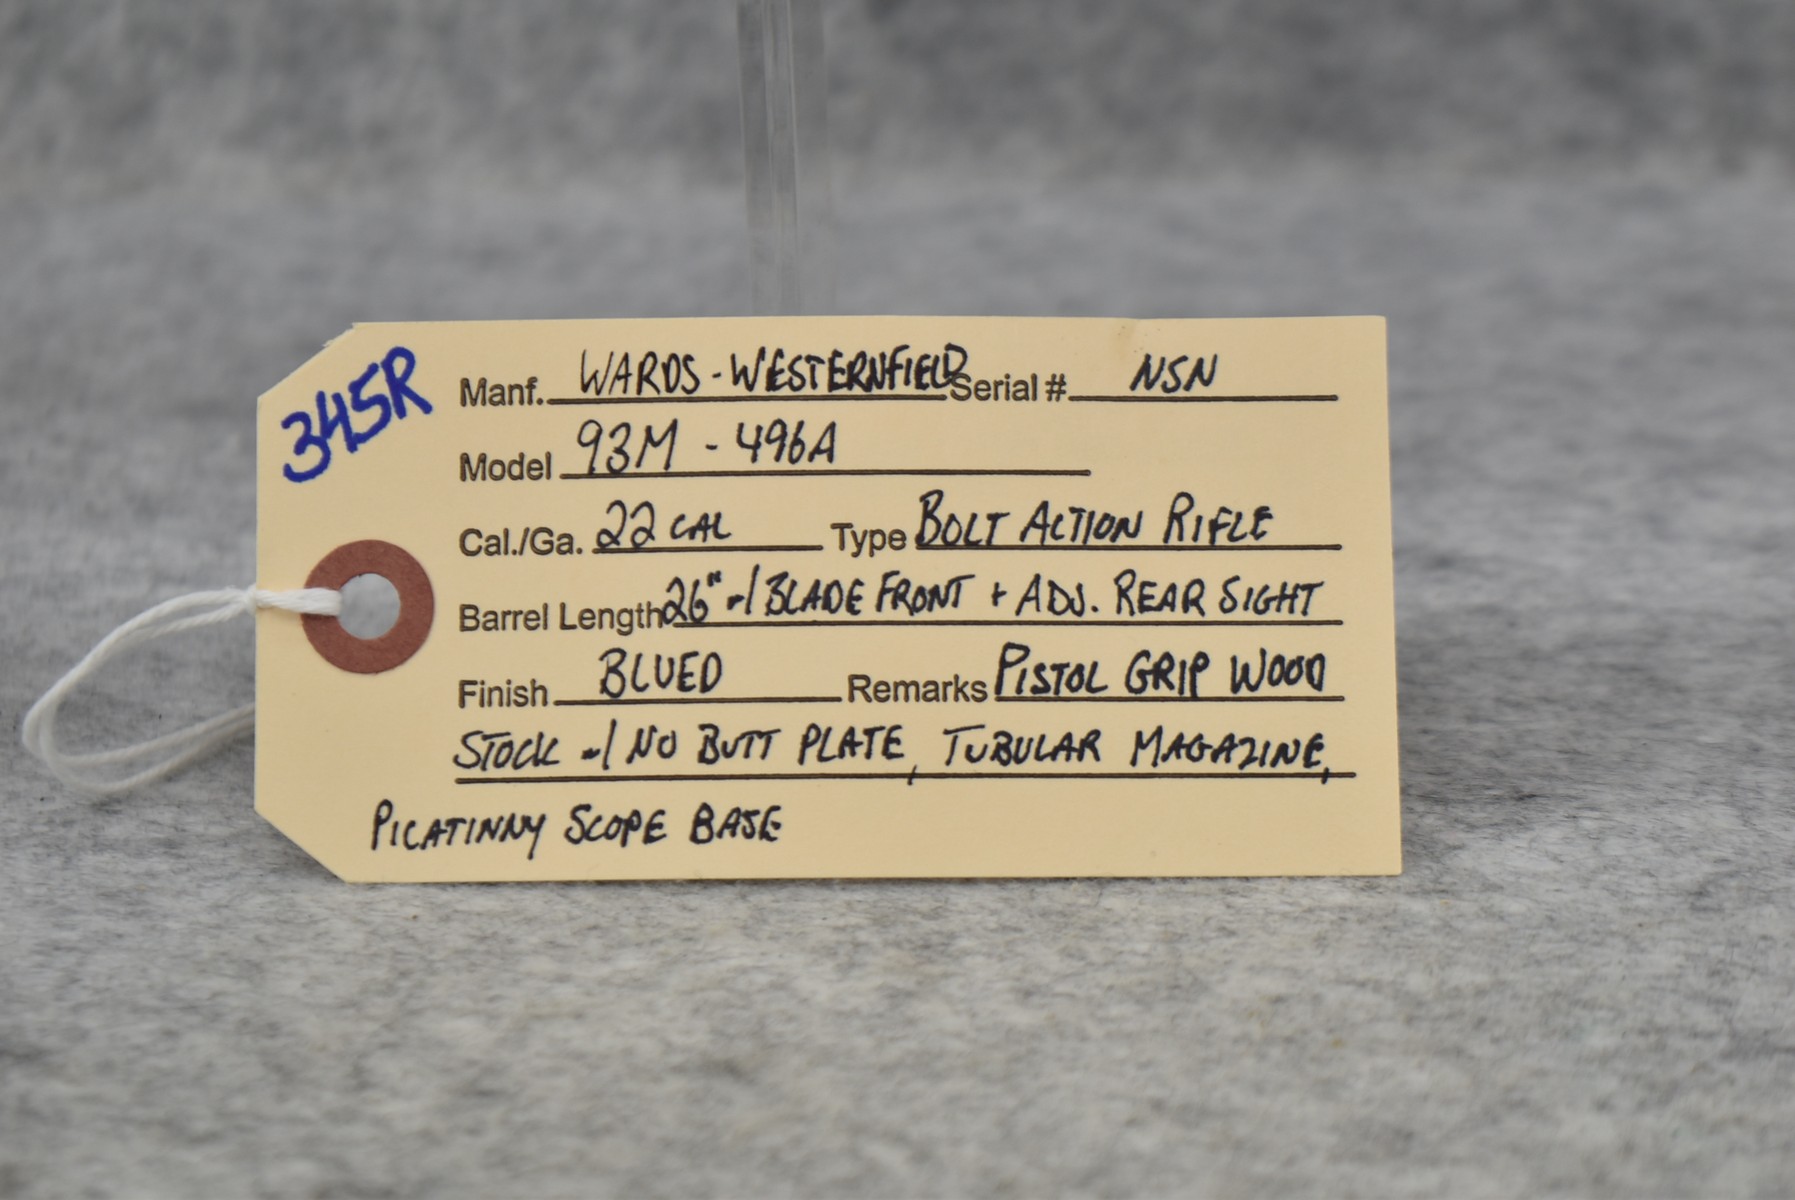 345R
Manf. WARDS - WESTERNFIELD Serial # NSN
Model 93M - 496A
Cal./Ga. 22 CAL Type BOLT ACTION RIFLE
Barrel Length 26" w/ BLADE FRONT + ADJ. REAR SIGHT
Finish BLUED Remarks PISTOL GRIP WOOD
STOCK w/ NO BUTT PLATE, TUBULAR MAGAZINE,
PICATINNY SCOPE BASE